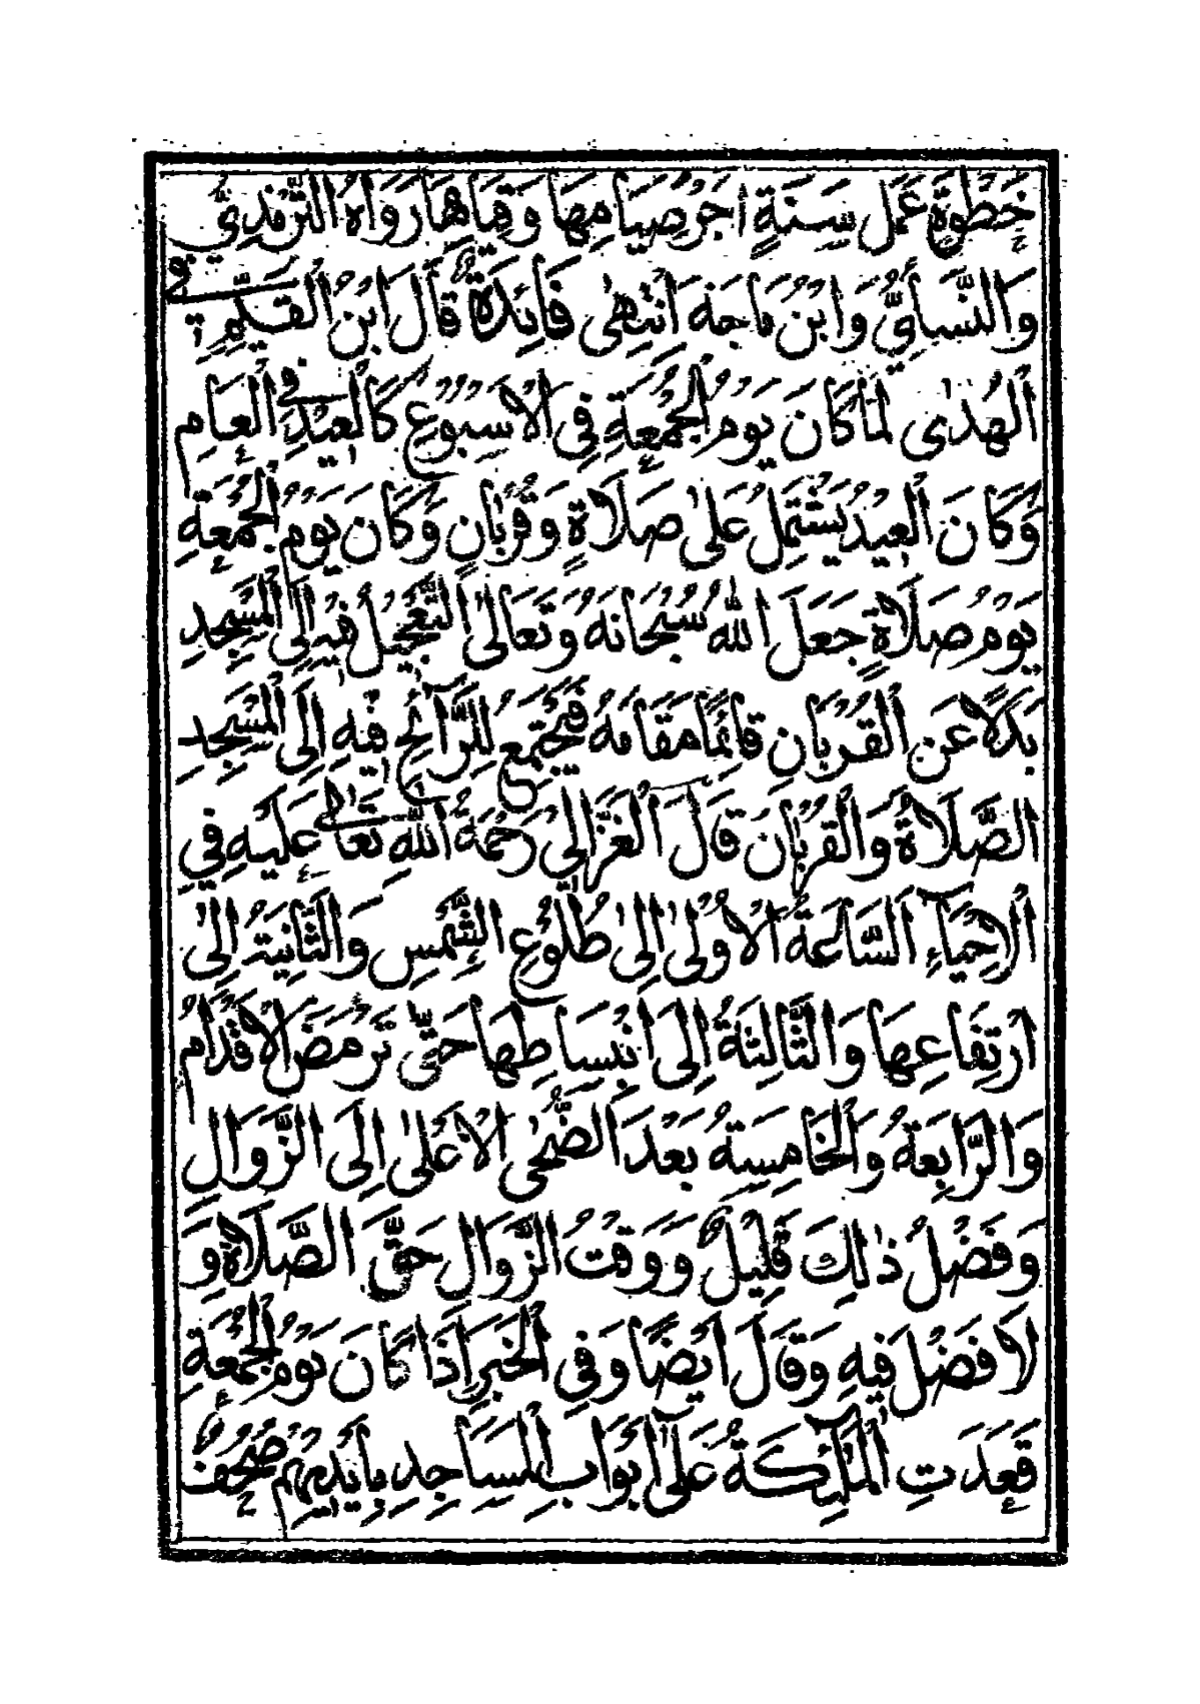 خَطْوَةٍ عَمَلُ سَنَةٍ اَجْرُ صِيَامِهَا وَقِيَامِهَا رَوَاهُ التِّرْمِذِيُّ
وَالنَّسَائِيُّ وَابْنُ مَاجَهْ اَنْتَهٰى فَائِدَةٌ قَالَ ابْنُ الْقَيِّمِ فِي
الْهُدٰى لَمَّا كَانَ يَوْمُ الْجُمُعَةِ فِي الْاُسْبُوْعِ كَالْعِيْدِ فِي الْعَامِ
وَكَانَ الْعِيْدُ يَشْتَمِلُ عَلٰى صَلَاةٍ وَقُرْبَانٍ وَكَانَ يَوْمُ الْجُمُعَةِ
يَوْمَ صَلَاةٍ جَعَلَ اللّٰهُ سُبْحَانَهُ وَتَعَالٰى التَّعْجِيْلُ فِيْهِ اِلَى الْمَسْجِدِ
بَدَلًا عَنِ الْقُرْبَانِ قَائِمًا مَقَامَهُ فَيَجْتَمِعُ لِلرَّائِحِ فِيْهِ اِلَى الْمَسْجِدِ
الصَّلَاةُ وَالْقُرْبَانَ قَالَ الْغَزَّالِي رَحْمَةُ اللّٰهِ تَعَالٰى عَلَيْهِ فِي
الْاِحْيَآءِ اَلسَّاعَةُ الْاُوْلٰى اِلٰى طُلُوْعِ الشَّمْسِ وَالثَّانِيَةُ اِلٰى
ارْتِفَاعِهَا وَالثَّالِثَةُ اِلَى انْبِسَاطِهَا حَتّٰى تَرْمَضَ الْاَقْدَامُ
وَالرَّابِعَةُ وَالْخَامِسَةُ بَعْدَ الضُّحٰى الْاَعْلٰى اِلَى الزَّوَالِ
وَفَضْلُ ذٰلِكَ قَلِيْلٌ وَوَقْتُ الزَّوَالِ حَقُّ الصَّلَاةِ وَ
لَا فَضْلَ فِيْهِ وَقَالَ اَيْضًا وَفِي الْخَبَرِ اِذَا كَانَ يَوْمُ الْجُمُعَةِ
قَعَدَتِ الْمَلٰٓئِكَةُ عَلٰٓى اَبْوَابِ الْمَسَاجِدِ بِاَيْدِيْهِمْ صُحُفٌ